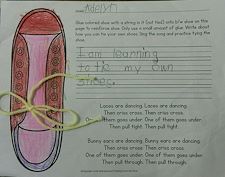 Name Adelyn
Glue colored shoe with a string in it (not tied) onto b/w shoe on this
page to reinforce shoe. Only use a small amount of glue. Write about
how you can tie your own shoes. Sing the song and practice tying the
shoe.
I am learning
to tie my own
shoes.
Laces are dancing. Laces are dancing.
Then criss cross. Then criss cross.
One of them goes under. One of them goes under.
Then pull tight. Then pull tight.
Bunny ears are dancing. Bunny ears are dancing.
Then criss cross. Then criss cross.
One of them goes under. One of them goes under.
Then pull through. Then pull through.